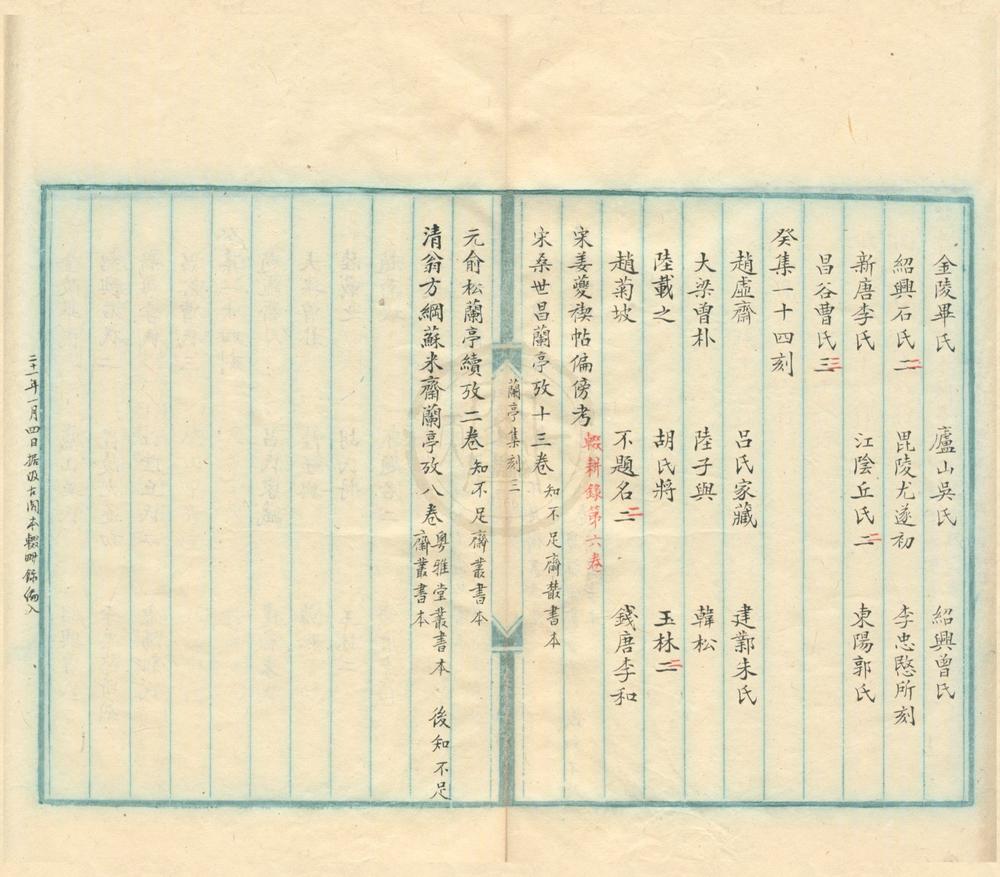 金陵畢氏　廬山吳氏　紹興曾氏
紹興石氏二　毘陵尤遂初　李忠愍所刻
新唐李氏　江陰丘氏二　東陽郭氏
昌谷曹氏三
癸集一十四刻
趙虛齋　呂氏家藏　建鄴朱氏
大梁曾朴　陸子與　韓松
陸載之　胡氏將　玉林二
趙菊坡　不題名二　錢唐李和
輟耕錄第六卷
宋姜夔禊帖偏傍考
宋桑世昌蘭亭攷十三卷 知不足齋叢書本
蘭亭集刻 三
元俞松蘭亭續攷二卷 知不足齋叢書本
清翁方綱蘇米齋蘭亭攷八卷 粵雅堂叢書本 後知不足齋叢書本
二十一年一月四日據汲古閣本輟畊錄編入